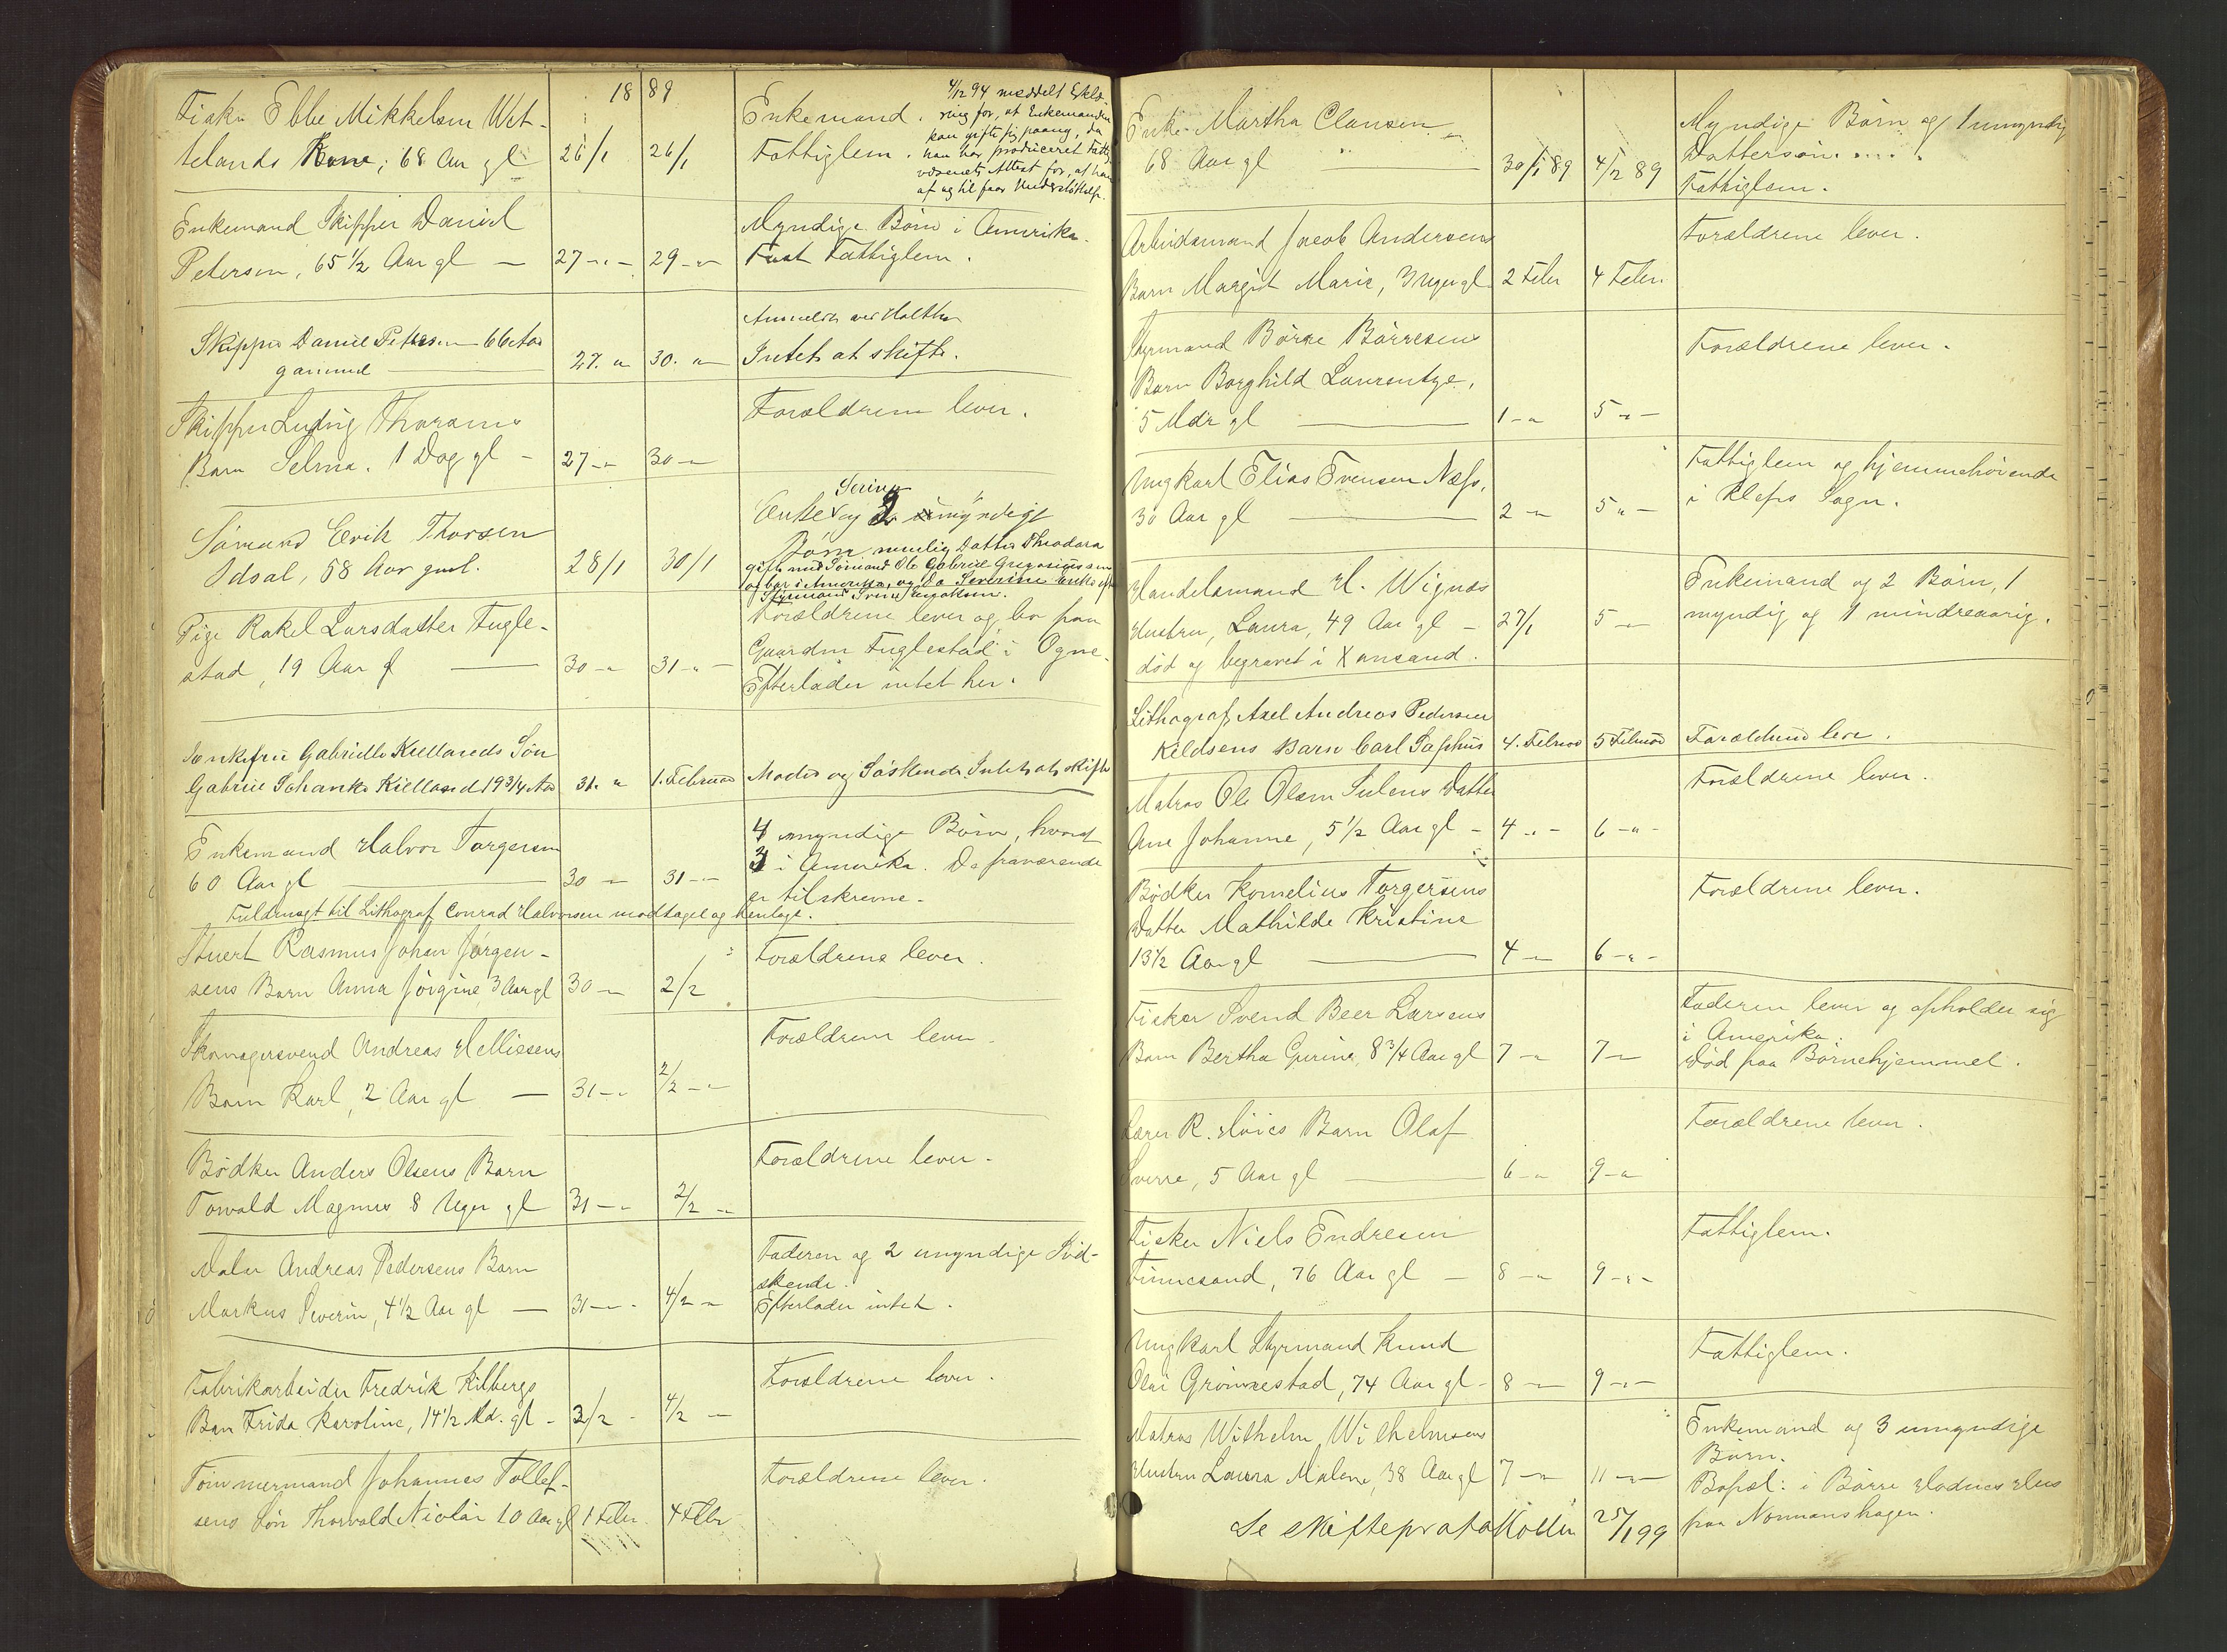 1889
Fisker Ebbe Mikkelsen Wet-
telands Kone, 68 Aar gl 26/1 26/1
Enkemand.
Fattiglem.
4/12 94 meddelt Erklæ-
ring for, at Enkemanden
kan gifte sig paany, da
han har produceret Fattig-
væsenets Attest for, at han
af og til faar Understøttelse.
Enkemand Skipper Daniel
Petersen, 65 1/2 Aar gl — 27 -"- 29 -"-
Myndige Børn i Amerika.
Fast Fattiglem.
Skipper Daniel Petersen 66 Aar
gammel 27. " 30. "
Intet at skifte.
Skipper Ludvig Thorsens
Barn Selma. 1 Dag gl - 27 -"- 30 -"-
Forældrene lever.
Sømand Erik Thorsen
Odsal, 58 Aar gml. 28/1 30/1
Serine
Enke og 2 myndige
Børn nemlig Datter Theodora
gift med Sømand Ole Gabriel Gregoriussen
og bor i Amerika, og Do Severine Enke eft
Styrmand Svend Jacobsen.
Pige Rakel Larsdatter Fugle-
stad, 19 Aar gl 30 -"- 31 -"-
Forældrene lever og bor paa
Gaarden Fuglestad i Ogne.
Efterlader intet her.
Enkefru Gabrielle Kiellands Søn
Gabriel Schanke Kielland 19 3/4 Aar 31. " 1. Februar
Moder og Søskende. Intet at skifte
Enkemand Halvor Torgersen
60 Aar gl 30 -"- 31 -"-
4 myndige Børn, hvoraf
3 i Amerika. De fraværende
er tilskrevne.
Fuldmagt til Lithograf Conrad Halvorsen modtaget og henlagt.
Stuert Rasmus Johan Jørgen-
sens Barn Anna Jørgine, 3 Aar gl 30 -"- 2/2
Forældrene lever.
Skomagersvend Andreas Helliesens
Barn Karl, 2 Aar gl — 31 -"- 2/2 -"-
Forældrene lever.
Bødker Anders Olsens Barn
Torvald Magnus 8 Uger gl 31 -"- 2/2 -"-
Forældrene lever.
Maler Andreas Pedersens Barn
Markus Severin, 4 1/2 Aar gl — 31 -"- 4/2 -"-
Faderen og 2 umyndige Sød-
skende.
Efterlader intet.
Fabrikarbeider Fredrik Kilbergs
Barn Frida Karoline, 14 1/2 Md. gl - 3/2 - 4/2 -
Forældrene lever.
Tømmermand Johannes Tollef-
sens Søn Thorvald Nicolai 10 Aar gl 1 Febr. 4 Febr
Forældrene lever.
Enke Martha Clausen
68 Aar gl 30/1 89 4/2 89
Myndige Børn og 1 umyndig
Dattersøn.
Fattiglem.
Arbeidsmand Jacob Andersens
Barn Margit Marie, 3 Uger gl. 2 Febr 4 Febr.
Forældrene lever.
Styrmand Børre Børresens
Barn Borghild Laurentze,
5 Mdr gl 1 -"- 5 -"-
Forældrene lever.
Ungkarl Elias Evensen Næss,
30 Aar gl 2 -"- 5 -"-
Fattiglem og hjemmehørende
i Klepps Sogn.
Handelsmand H. Wignæs
Hustru, Laura, 49 Aar gl - 27/1 5 -"-
død og begravet i Xansand.
Enkemand og 2 Børn, 1
myndig og 1 mindreaarig.
Lithograf Axel Andreas Pedersen
Kildsens Barn Carl Sophus 4. Februar 5 Februar
Forældrene leve.
Matros Ole Olsen Sulens Datter
Ane Johanne, 5 1/2 Aar gl - 4 -"- 6 -"-
Forældrene lever.
Bødker Kornelius Torgersens
Datter Mathilde Kristine
13 1/2 Aar gl 4 -"- 6 -"-
Forældrene lever.
Fisker Svend Beer Larsens
Barn Bertha Gurine 8 3/4 Aar gl 7 -"- 7 -"-
Faderen lever og opholder sig
i Amerika.
Død paa Børnehjemmet.
Lærer R. Høies Barn Olaf
Sverre, 5 Aar gl 6 -"- 9 -"-
Forældrene lever.
Fisker Niels Endresen
Finnesand, 76 Aar gl — 8 -"- 9 -"-
Fattiglem.
Ungkarl Styrmand Knud
Olai Grønnestad, 74 Aar gl - 8 -"- 9 -"-
Fattiglem.
Matros Wilhelm Wilhelmsens
Hustru Laura Malene, 38 Aar gl 7 -"- 11 -"-
Enkemand og 3 umyndige
Børn.
Bopæl: i Børre Hodnes Hus
paa Normanshagen.
Se skifteprotokollen 25/1 99